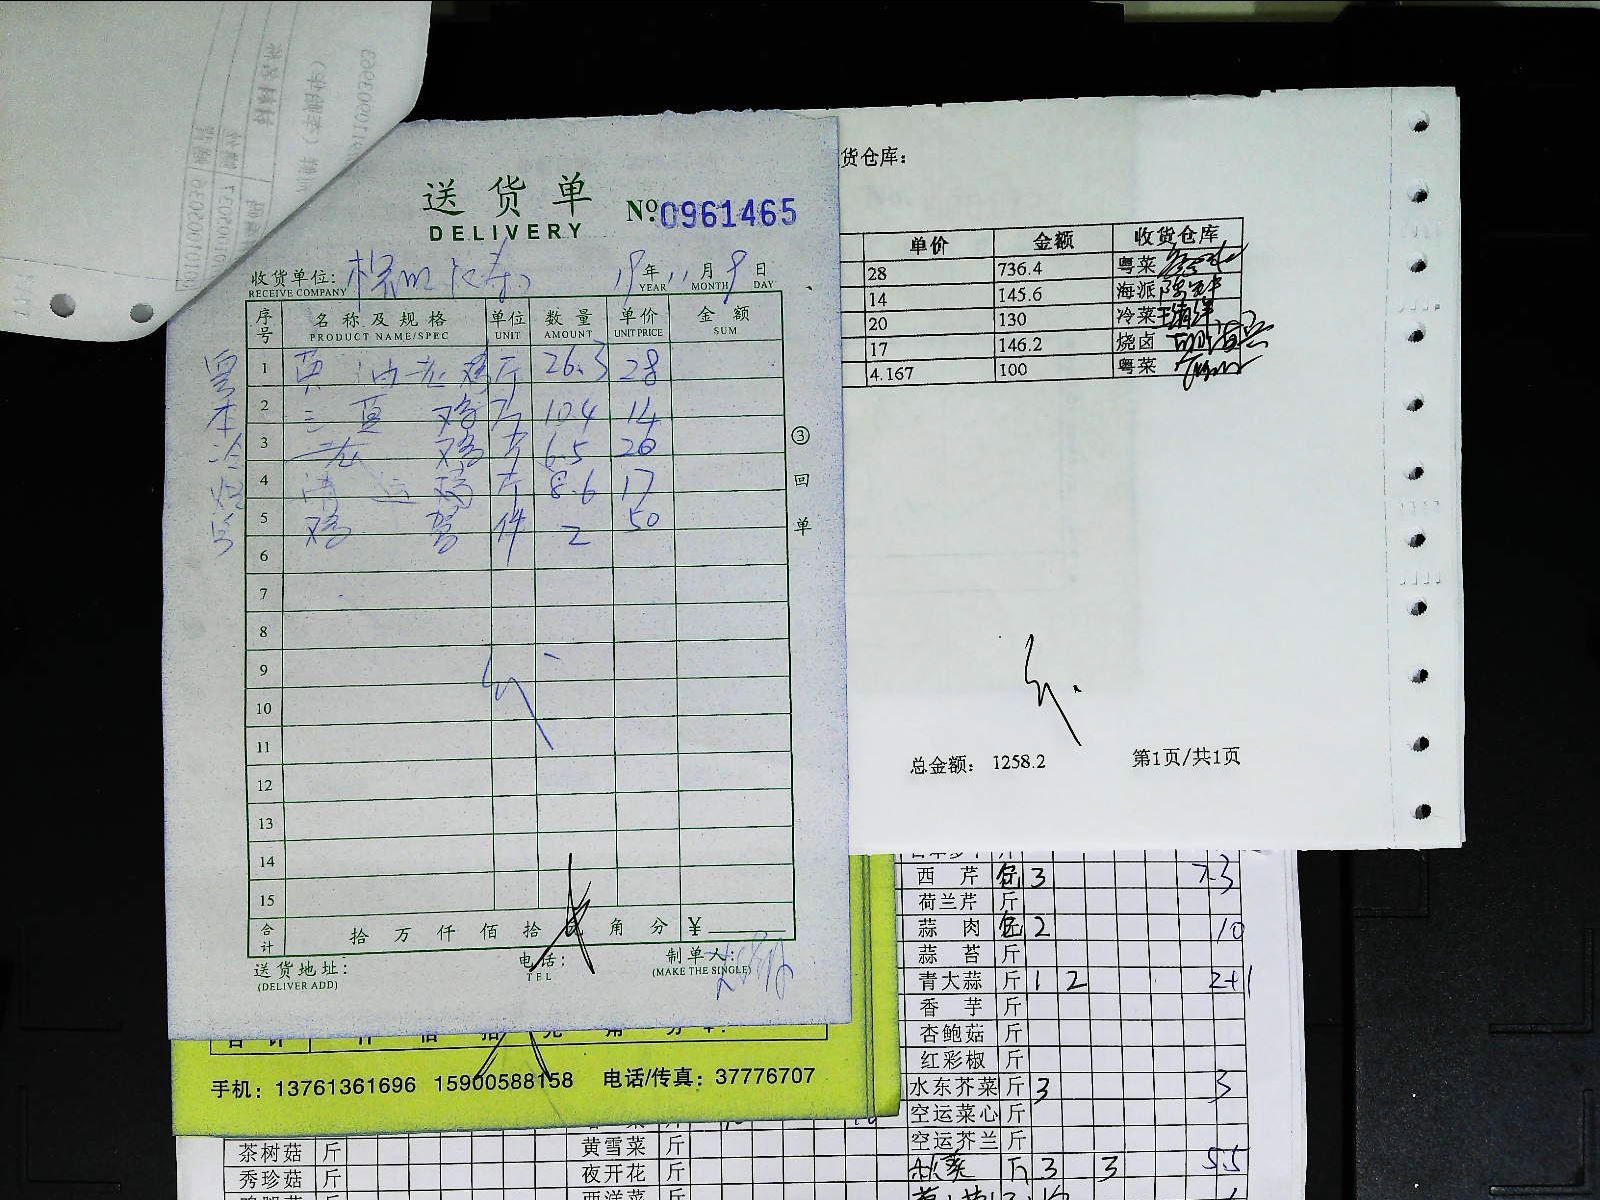 送货单
DELIVERY
No 0961465
收货单位:
RECEIVE COMPANY
19年 11月 9日
YEAR MONTH DAY
序号 名称及规格 单位 数量 单价 金额
PRODUCT NAME/SPEC UNIT AMOUNT UNIT PRICE SUM
1 斤 26.3 28
2 三黄鸡 斤 10.4 14
3 老鸡 斤 6.5 20
4 清远鸡 斤 8.6 17
5 鸡 件 2 50
6
7
8
9
10
11
12
13
14
15
合计 拾 万 仟 佰 拾 角 分 ¥
③ 回单
送货地址:
(DELIVER ADD)
电话:
TEL
制单人:
(MAKE THE SINGLE)
货仓库:
单价 金额 收货仓库
28 736.4 粤菜
14 145.6 海派
20 130 冷菜
17 146.2 烧卤
4.167 100 粤菜
总金额: 1258.2 第1页/共1页
手机: 13761361696 15900588158 电话/传真: 37776707
西芹 3 7.3
荷兰芹 斤
蒜肉 2 10
蒜苔 斤
青大蒜 斤 1 2 2+1
香芋 斤
杏鲍菇 斤
红彩椒 斤
水东芥菜 斤 3 3
空运菜心 斤
空运芥兰 斤
秋葵 3 3 5.5
茶树菇 斤
秀珍菇 斤
黄雪菜 斤
夜开花 斤
西洋菜 斤